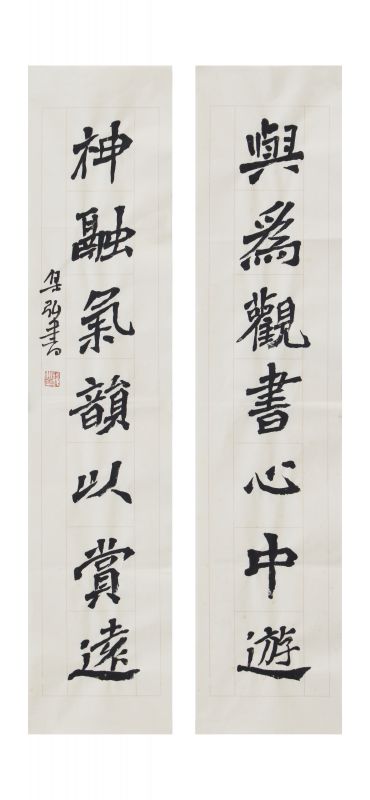 與為觀書心中遊
神融氣韻以賞遠
弘書